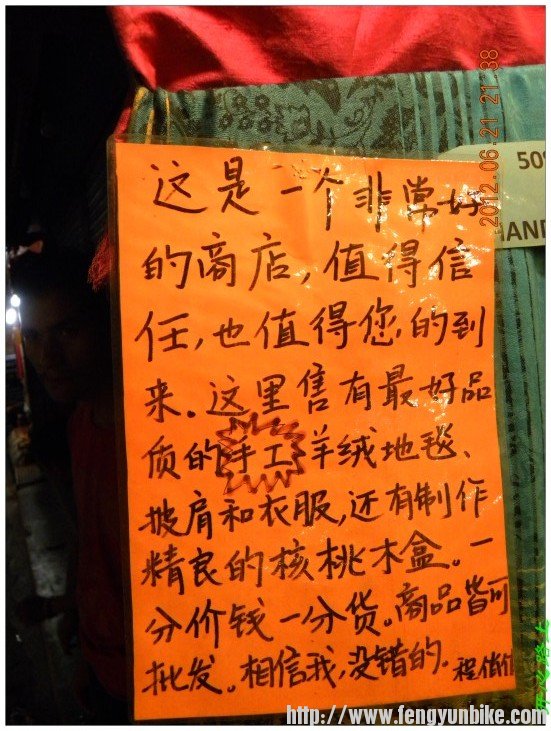 2012.06.21 21:38
这是一个非常好
的商店,值得信
任,也值得您,的到
来。这里售有最好品
质的手工羊绒地毯、
披肩和衣服,还有制作
精良的核桃木盒。一
分价钱一分货。商品皆可
批发。相信我,没错的。
50%
HAND
http://www.fengyunbike.com